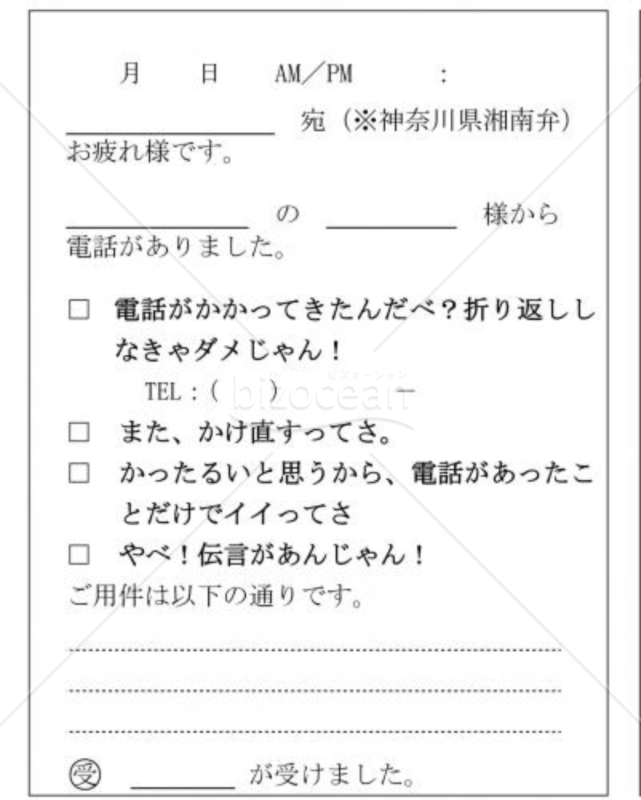 月 日 AM/PM :
＿＿＿＿＿＿＿＿ 宛（※神奈川県湘南弁）
お疲れ様です。
＿＿＿＿＿＿＿ の ＿＿＿＿＿ 様から
電話がありました。
□ 電話がかかってきたんだべ？折り返しし
なきゃダメじゃん！
TEL：( ) －
□ また、かけ直すってさ。
□ かったるいと思うから、電話があったこ
とだけでイイってさ
□ やべ！伝言があんじゃん！
ご用件は以下の通りです。
㊌ ＿＿＿＿ が受けました。
ビズオーシャン
bizocean